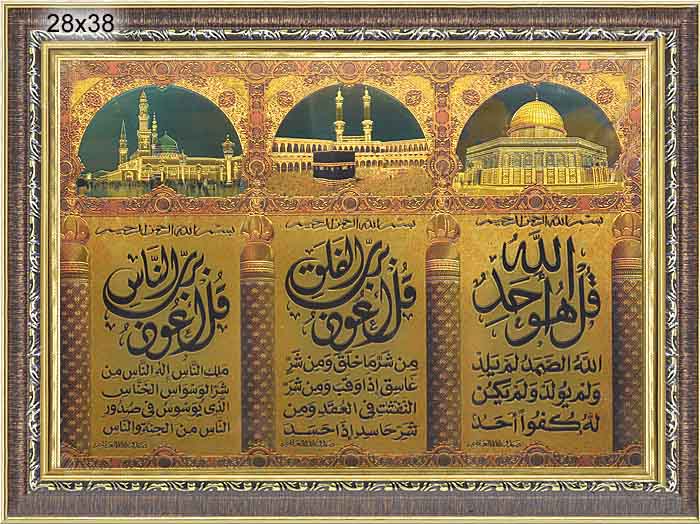 28x38
بسم الله الرحمن الرحيم
قل هو الله أحد
الله الصمد لم يلد
ولم يولد ولم يكن
له كفوا أحد
بسم الله الرحمن الرحيم
قل أعوذ برب الفلق
من شر ما خلق ومن شر
غاسق إذا وقب ومن شر
النفثت في العقد ومن
شر حاسد إذا حسد
بسم الله الرحمن الرحيم
قل أعوذ برب الناس
ملك الناس إله الناس من
شر الوسواس الخناس
الذي يوسوس في صدور
الناس من الجنة والناس